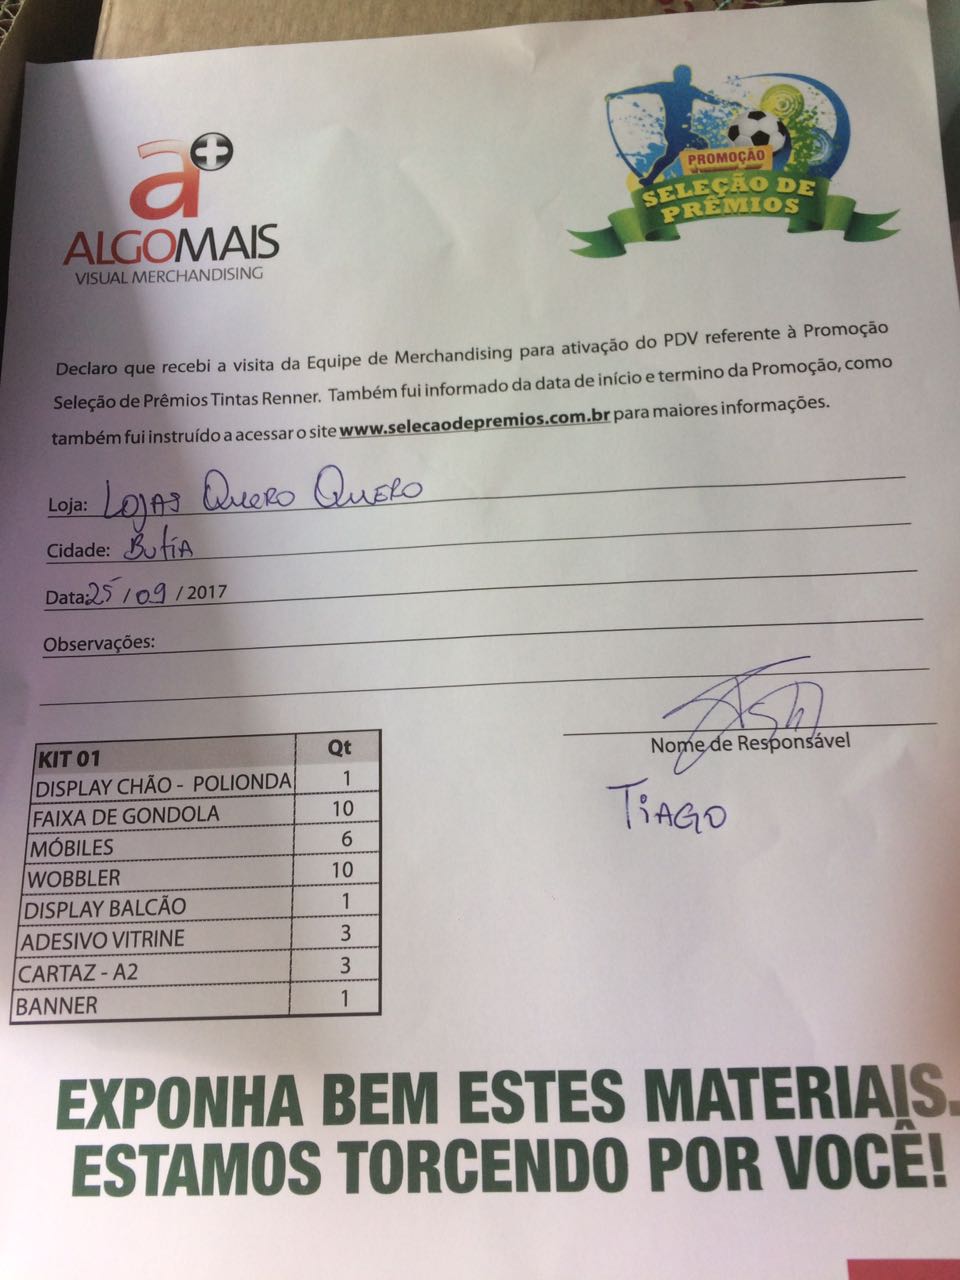 a+
ALGOMAIS
VISUAL MERCHANDISING
PROMOÇÃO
SELEÇÃO DE
PRÊMIOS
Declaro que recebi a visita da Equipe de Merchandising para ativação do PDV referente à Promoção
Seleção de Prêmios Tintas Renner. Também fui informado da data de início e termino da Promoção, como
também fui instruído a acessar o site www.selecaodepremios.com.br para maiores informações.
Loja: LOJAS QUERO QUERO
Cidade: BUTIA
Data: 25/09/2017
Observações:
Nome de Responsável
TIAGO
KIT 01 Qt
DISPLAY CHÃO - POLIONDA 1
FAIXA DE GONDOLA 10
MÓBILES 6
WOBBLER 10
DISPLAY BALCÃO 1
ADESIVO VITRINE 3
CARTAZ - A2 3
BANNER 1
EXPONHA BEM ESTES MATERIAIS.
ESTAMOS TORCENDO POR VOCÊ!